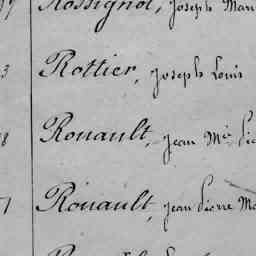 Rossignol, Joseph
3 Rottier, Joseph Louis
8 Rouault, Jean Mie
Rouault, Jean Pierre